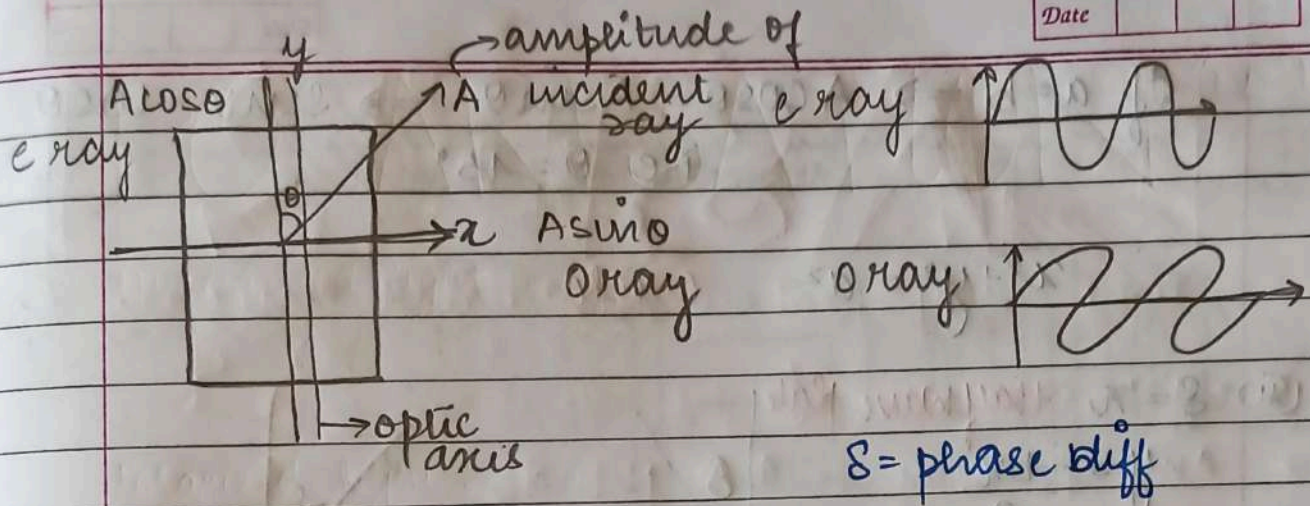 Date
y
→amplitude of
A cosθ
A incident e ray
ray
e ray
θ
x A sinθ
O ray O ray
→optic
axis
δ = phase diff